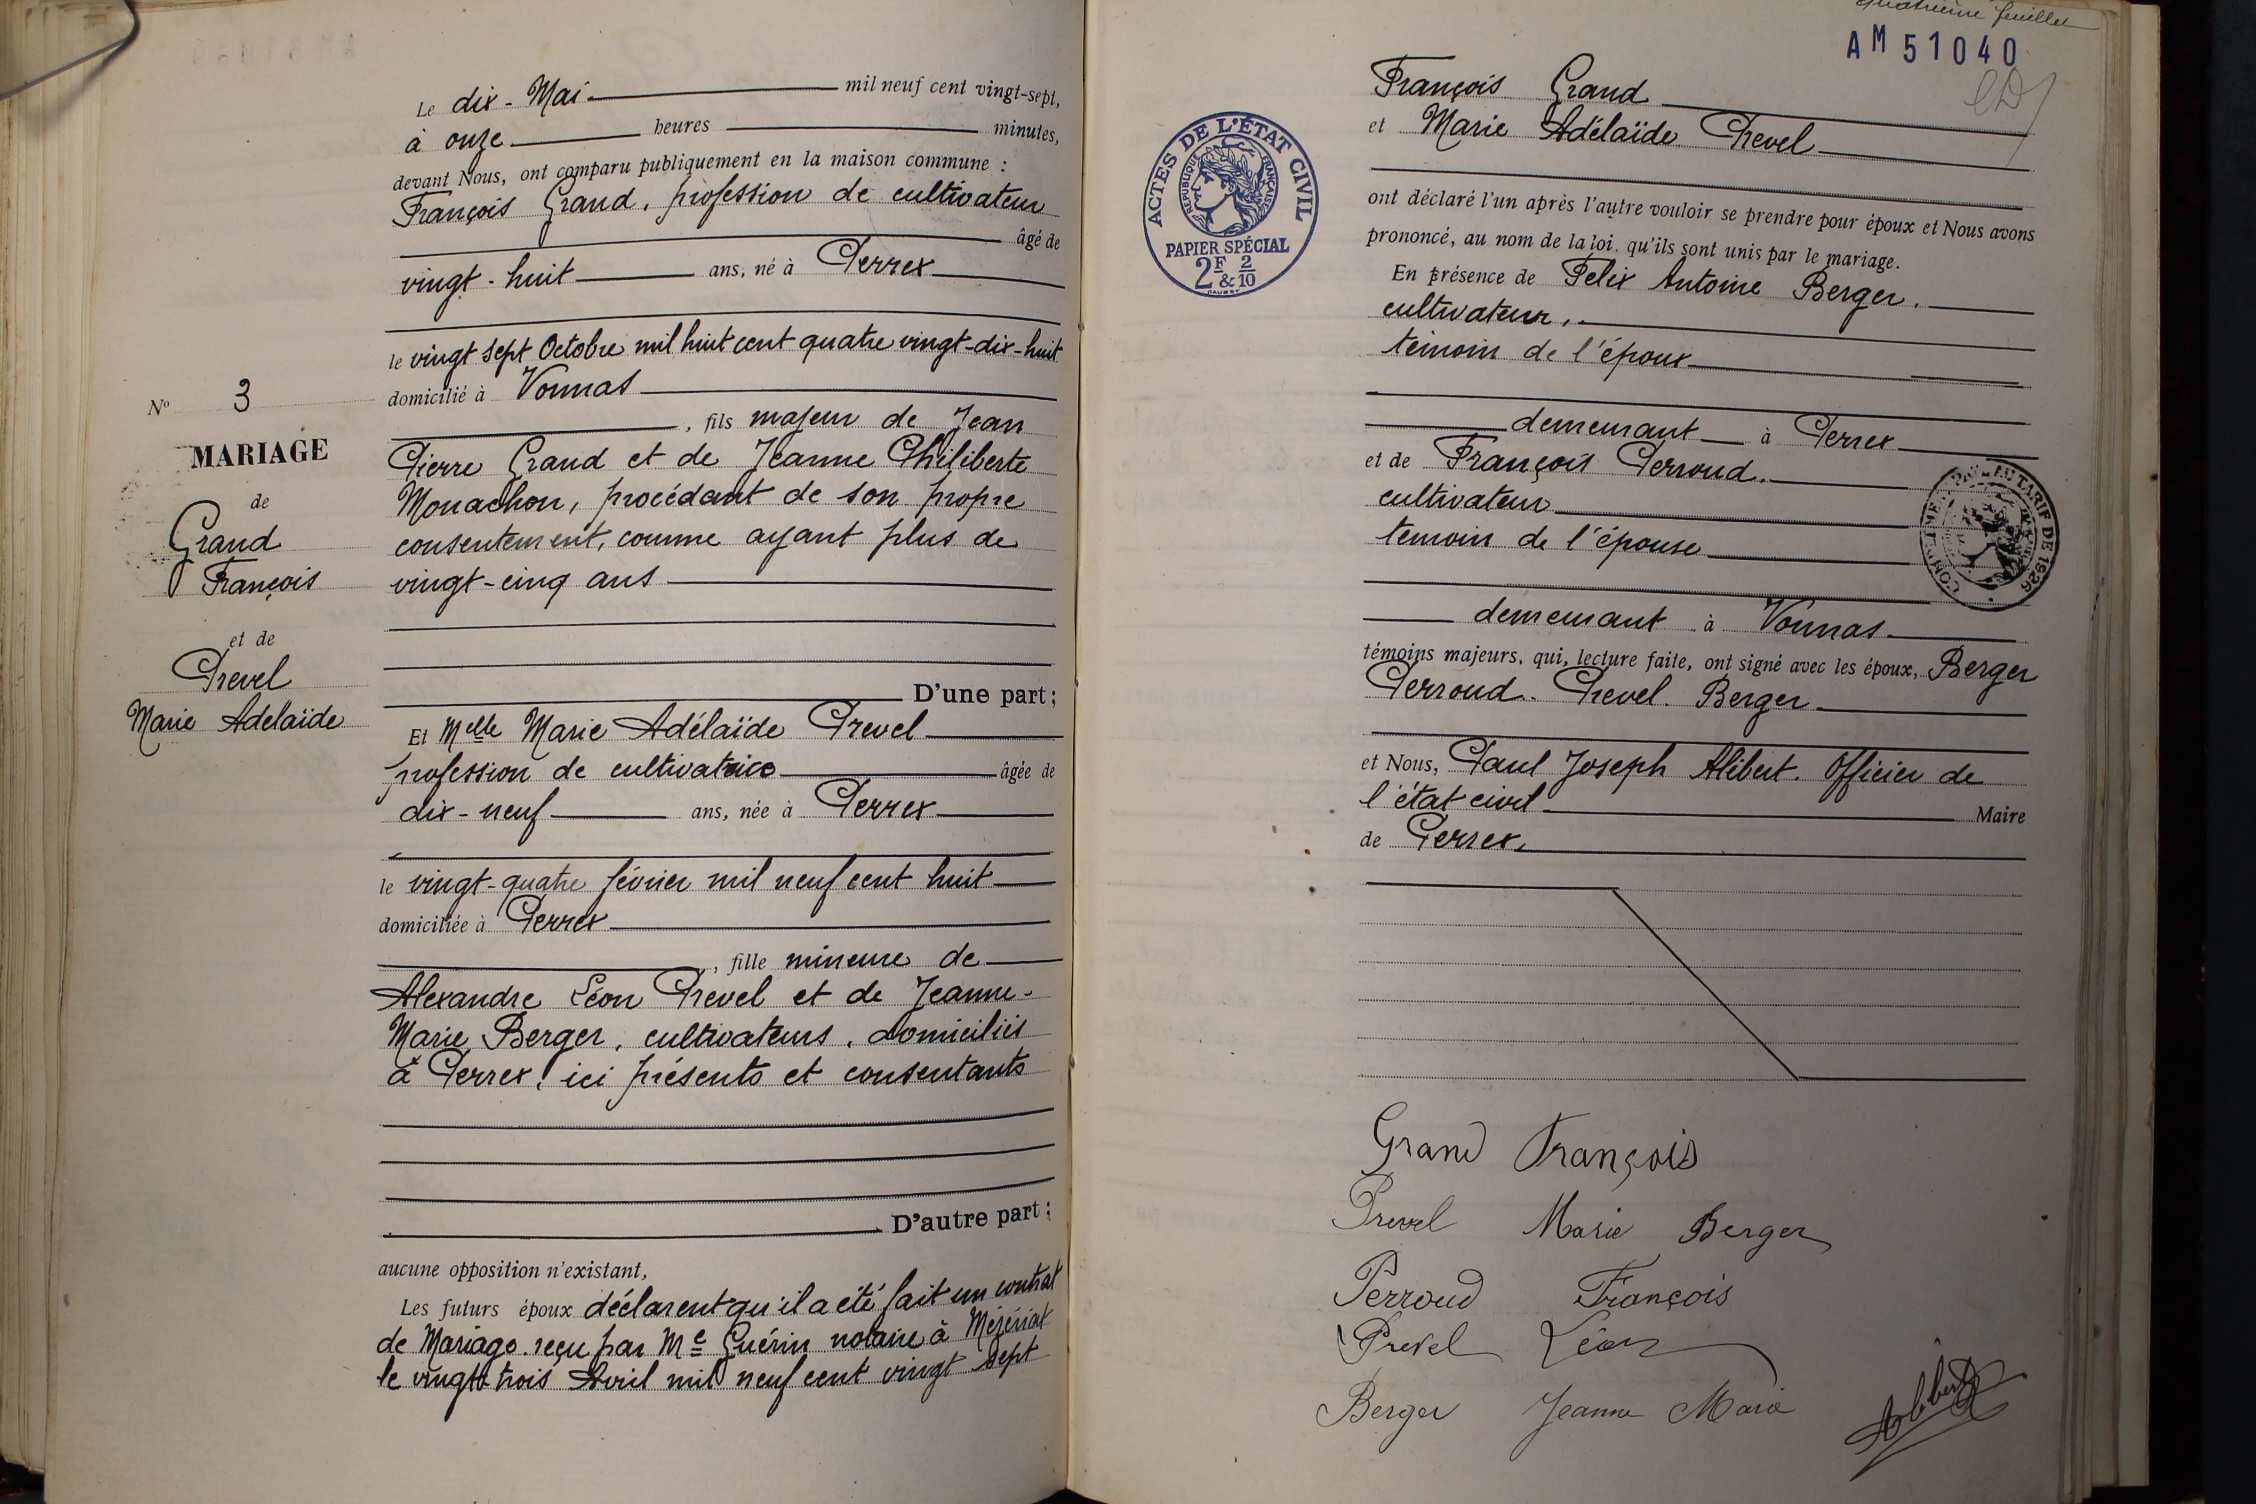 Le dix - Mai mil neuf cent vingt-sept,
à onze heures minutes,
devant Nous, ont comparu publiquement en la maison commune :
François Grand, profession de cultivateur
âgé de
vingt-huit ans, né à Perrex
le vingt sept Octobre mil huit cent quatre vingt-dix-huit
domicilié à Vonnas
, fils majeur de Jean
Pierre Grand et de Jeanne Philiberte
Monachon, procédant de son propre
consentement, comme ayant plus de
vingt-cinq ans
D'une part;
Et Melle Marie Adélaïde Prevel
profession de cultivatrice âgée de
dix-neuf ans, née à Perrex
le vingt-quatre février mil neuf cent huit
domiciliée à Perrex
, fille mineure de
Alexandre Léon Prevel et de Jeanne-
Marie Berger, cultivateurs, domiciliés
à Perrex, ici présents et consentants
D'autre part;
aucune opposition n'existant,
Les futurs époux déclarent qu'il a été fait un contrat
de Mariage reçu par Me Guérin notaire à Mézériat
le vingt-trois Avril mil neuf cent vingt sept
No 3
MARIAGE
de
Grand
François
et de
Prevel
Marie Adelaïde
quatrième feuillet
AM 51040
François Grand
et Marie Adélaïde Prevel
ont déclaré l'un après l'autre vouloir se prendre pour époux et Nous avons
prononcé, au nom de la loi, qu'ils sont unis par le mariage.
En présence de Felix Antoine Berger,
cultivateur,
témoin de l'époux
demeurant à Perrex
et de François Perroud,
cultivateur
temoin de l'épouse
demeurant à Vonnas
témoins majeurs, qui, lecture faite, ont signé avec les époux, Berger
Perroud. Prevel. Berger
et Nous, Paul Joseph Alibert. Officier de
l'état civil Maire
de Perrex,
ACTES DE L'ÉTAT CIVIL
RÉPUBLIQUE FRANÇAISE
PAPIER SPÉCIAL
2F & 2/10
TARIF DE 1926
Grand François
Prevel Marie Berger
Perroud François
Prevel Léon
Berger Jeanne Marie
Alibert